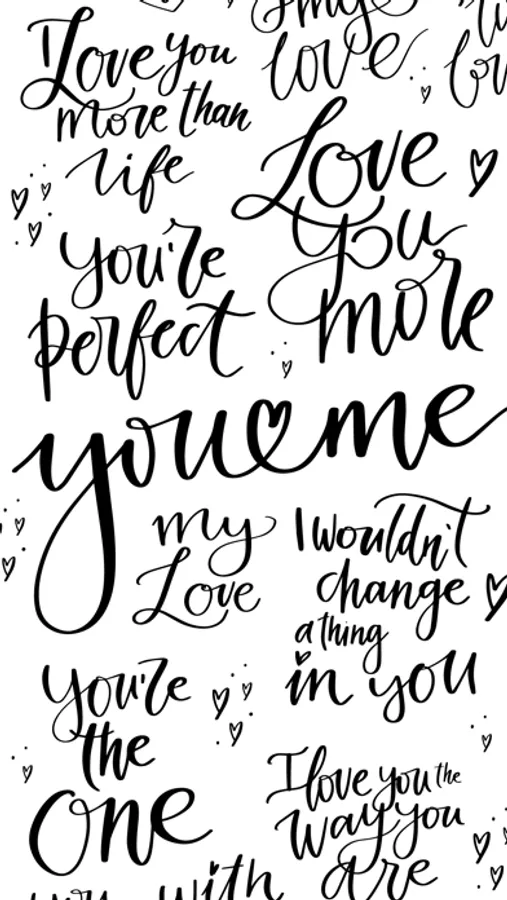 I Love you
more than
life
my
love
Love
you
more
you're
perfect
you me
my
Love
I wouldn't
change
a thing
in you
You're
the
One
I love you the
way you
are
you with